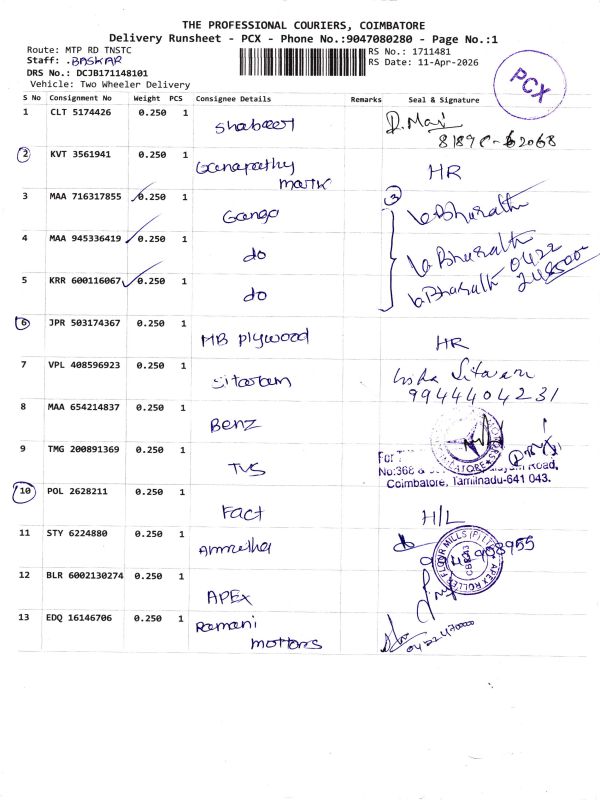 THE PROFESSIONAL COURIERS, COIMBATORE
Delivery Runsheet - PCX - Phone No.:9047080280 - Page No.:1
Route: MTP RD TNSTC
Staff: .BASKAR
DRS No.: DCJB171148101
Vehicle: Two Wheeler Delivery
RS No.: 1711481
RS Date: 11-Apr-2026
PCX
S No Consignment No Weight PCS Consignee Details Remarks Seal & Signature
1 CLT 5174426 0.250 1 Shabeer D. Mari
2 KVT 3561941 0.250 1 Ganapathy mark HR
3 MAA 716317855 0.250 1 Ganga 3 Bharath
4 MAA 945336419 0.250 1 do Bharath 0422
5 KRR 600116067 0.250 1 do Bharath
6 JPR 503174367 0.250 1 MB plywood HR
7 VPL 408596923 0.250 1 Sitaram Sitaram
9944404231
8 MAA 654214837 0.250 1 Benz
9 TMG 200891369 0.250 1 TVS
No:368 &
Road,
Coimbatore, Tamilnadu-641 043.
10 POL 2628211 0.250 1 Fact H/L
11 STY 6224880 0.250 1 Amretha
12 BLR 6002130274 0.250 1 APEX
APEX ROLLER FLOUR MILLS (P) LTD
13 EDQ 16146706 0.250 1 Ramani mottors